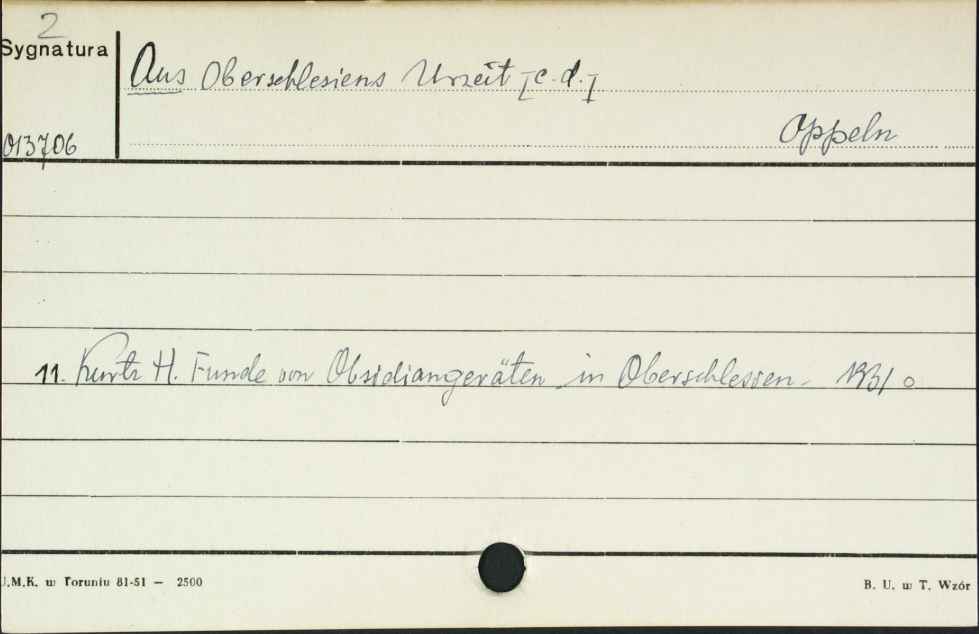 2
Sygnatura
Aus Oberschlesiens Urzeit [c. d.]
Oppeln
013706
11. Kurtz H. Funde von Obsidiangeräten in Oberschlesien. 1931
U.M.K. w Toruniu 81-51 — 2500
B. U. w T. Wzór